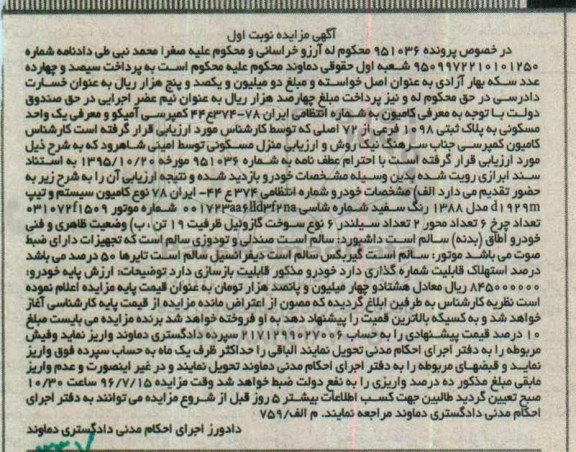 آگهی مزایده نوبت اول
در خصوص پرونده ۹۵۱۰۳۶ محکوم له آرزو خراسانی و محکوم علیه صغرا محمد نبی طی دادنامه شماره
۹۵۰۹۹۷۲۲۱۰۱۰۱۲۵۰ شعبه اول حقوقی دماوند محکوم علیه محکوم است به پرداخت سیصد و چهارده
عدد سکه بهار آزادی به عنوان اصل خواسته و مبلغ دو میلیون و یکصد و پنج هزار ریال به عنوان خسارت
دادرسی در حق محکوم له و نیز پرداخت مبلغ چهارصد هزار ریال به عنوان نیم عضر اجرایی در حق صندوق
دولت با توجه به معرفی کامیون به شماره انتظامی ایران ۷۸-۳۷۴ع۴۴ کمپرسی آمیکو و معرفی یک واحد
مسکونی به پلاک ثبتی ۱۰۹۸ فرعی از ۷۲ اصلی که توسط کارشناس مورد ارزیابی قرار گرفته است کارشناس
کامیون کمپرسی جناب سرهنگ نیک روش و ارزیابی منزل مسکونی توسط امینی شاهرود که به شرح ذیل
مورد ارزیابی قرار گرفته است با احترام عطف نامه به شماره ۹۵۱۰۳۶ مورخه ۱۳۹۵/۱۰/۲۰ به استناد
سند ابرازی رویت شده بدین وسیله مشخصات خودرو بازدید شده و نتیجه ارزیابی آن را به شرح زیر به
حضور تقدیم می دارد الف) مشخصات خودرو شماره انتظامی ۳۷۴ ع ۴۴- ایران ۷۸ نوع کامیون سیستم و تیپ
d۱۹۲۹m مدل ۱۳۸۸ رنگ سفید شماره شاسی ۰۰۱۷۲۳aa۶lld۳f۲na شماره موتور ۰۳۱۰۷۲f۱۵۰۹
تعداد چرخ ۶ تعداد محور ۲ تعداد سیلندر ۶ نوع سوخت گازوئیل ظرفیت ۱۹ تن ، ب) وضعیت ظاهری و فنی
خودرو اطاق (بدنه) سالم است داشبورد: سالم است صندلی و تودوزی سالم است که تجهیزات دارای ضبط
صوت می باشد موتور: سالم است گیربکس سالم است دیفرانسیل سالم است تایرها ۵۰ درصد می باشد
درصد استهلاک قابلیت شماره گذاری دارد خودرو مذکور قابلیت بازسازی دارد توضیحات: ارزش پایه خودرو:
۸۴۵۰۰۰۰۰۰ ریال معادل هشتادو چهار میلیون و پانصد هزار تومان به عنوان قیمت پایه مزایده اعلام نموده
است نظریه کارشناس به طرفین ابلاغ گردیده که مصون از اعتراض مانده مزایده از قیمت پایه کارشناسی آغاز
خواهد شد و به کسیکه بالاترین قمیت را پیشنهاد دهد به او فروخته خواهد شد برنده مزایده می بایست مبلغ
۱۰ درصد قیمت پیشنهادی را به حساب ۲۱۷۱۲۹۹۰۲۷۰۰۶ سپرده دادگستری دماوند واریز نماید وفیش
مربوطه را به دفتر اجرای احکام مدنی تحویل نمایند الباقی را حداکثر ظرف یک ماه به حساب سپرده فوق واریز
نمایـد و قبضهای مربوطه را به دفتر اجرای احکام مدنی دماوند تحویل نمایند و در غیر اینصورت و عدم واریز
مابقی مبلغ مذکور ده درصد واریزی را به نفع دولت ضبط خواهد شد وقت مزایده ۹۶/۷/۱۵ ساعت ۱۰/۳۰
صبح تعیین گردید طالبین جهت کسب اطلاعات بیشتر ۵ روز قبل از شروع مزایده می توانند به دفتر اجرای
احکام مدنی دادگستری دماوند مراجعه نمایند. م الف/۷۵۹
دادورز اجرای احکام مدنی دادگستری دماوند